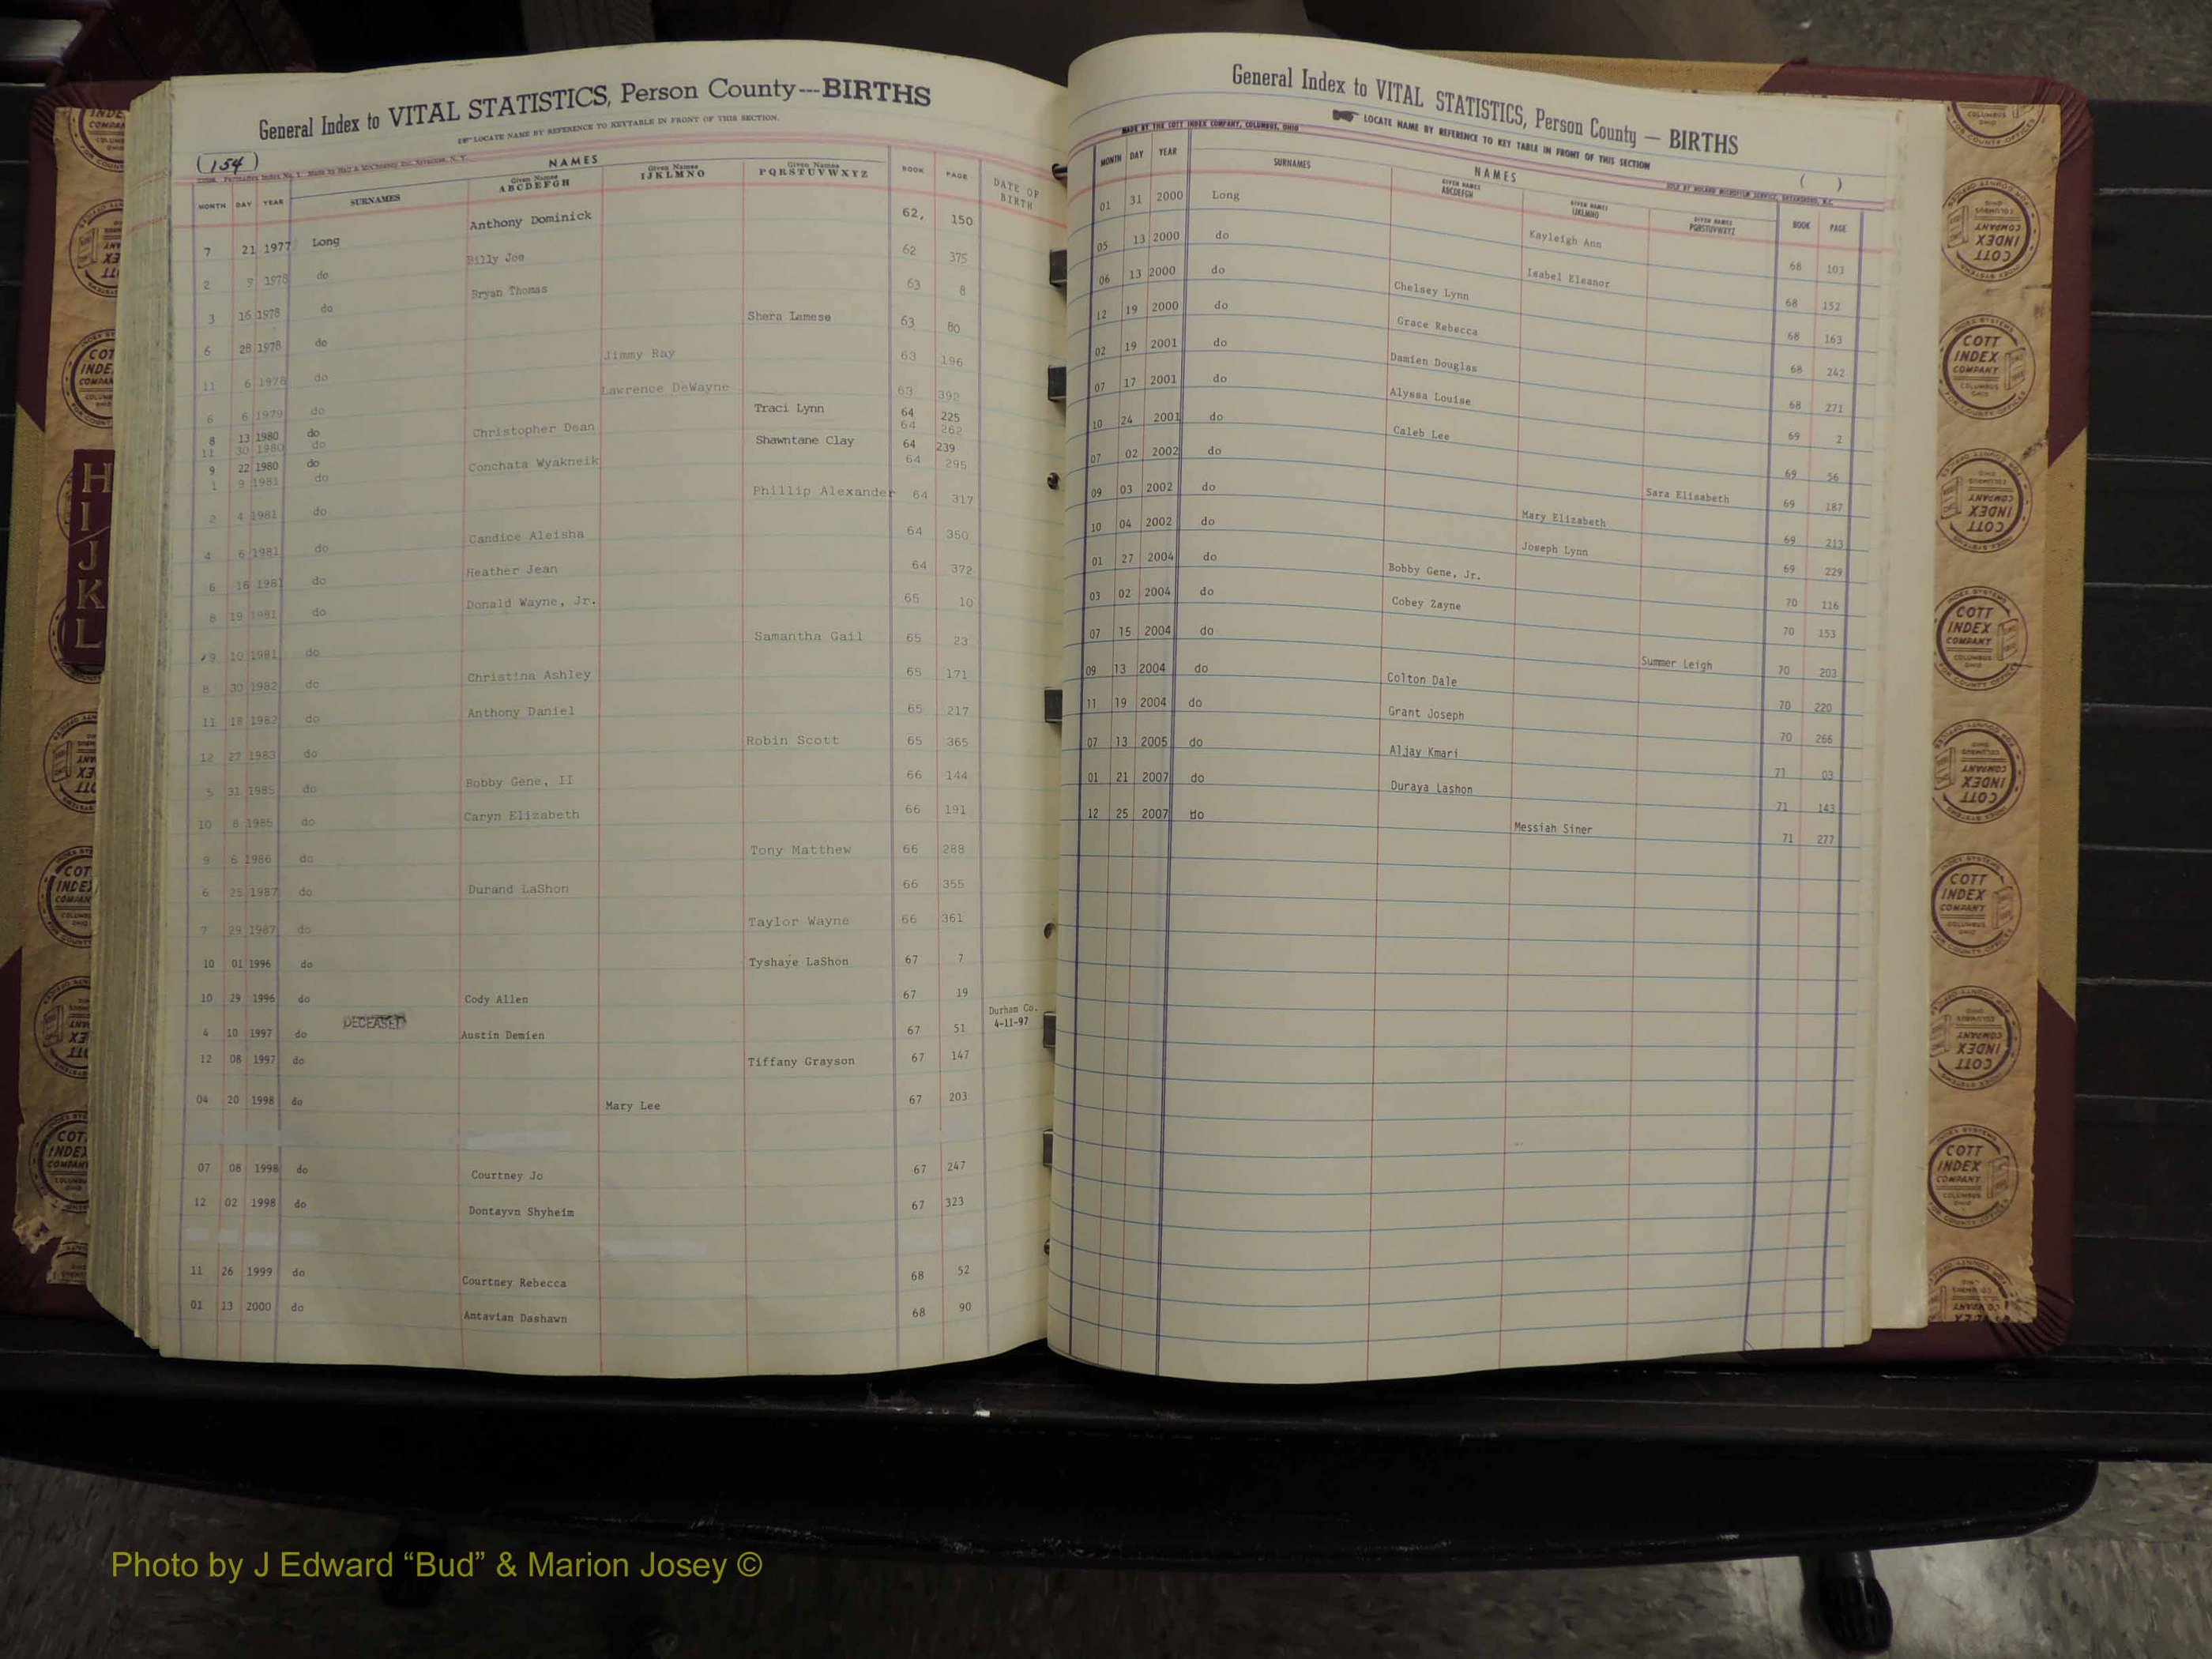 General Index to VITAL STATISTICS, Person County---BIRTHS
LOCATE NAME BY REFERENCE TO KEYTABLE IN FRONT OF THIS SECTION.
(154)
NAMES
MONTH DAY YEAR SURNAMES Given Names ABCDEFGH Given Names IJKLMNO Given Names PQRSTUVWXYZ BOOK PAGE DATE OF BIRTH
7 21 1977 Long Anthony Dominick 62, 150
2 9 1978 do Billy Joe 62 375
3 16 1978 do Bryan Thomas 63 8
6 28 1978 do Shera Lamese 63 80
11 6 1978 do Jimmy Ray 63 196
6 6 1979 do Lawrence DeWayne 63 392
8 13 1980 do Traci Lynn 64 225
11 30 1980 do Christopher Dean 64 262
9 22 1980 do Shawntane Clay 64 239
1 9 1981 do Conchata Wyakneik 64 295
2 4 1981 do Phillip Alexander 64 317
4 6 1981 do Candice Aleisha 64 350
6 16 1981 do Heather Jean 64 372
8 19 1981 do Donald Wayne, Jr. 65 10
9 10 1981 do Samantha Gail 65 23
8 30 1982 do Christina Ashley 65 171
11 18 1982 do Anthony Daniel 65 217
12 27 1983 do Robin Scott 65 365
5 31 1985 do Bobby Gene, II 66 144
10 8 1985 do Caryn Elizabeth 66 191
9 6 1986 do Tony Matthew 66 288
6 25 1987 do Durand LaShon 66 355
7 29 1987 do Taylor Wayne 66 361
10 01 1996 do Tyshaye LaShon 67 7
10 29 1996 do Cody Allen 67 19
4 10 1997 do DECEASED Austin Demien 67 51 Durham Co. 4-11-97
12 08 1997 do Tiffany Grayson 67 147
04 20 1998 do Mary Lee 67 203
07 08 1998 do Courtney Jo 67 247
12 02 1998 do Dontayvn Shyheim 67 323
11 26 1999 do Courtney Rebecca 68 52
01 13 2000 do Antavian Dashawn 68 90
General Index to VITAL STATISTICS, Person County — BIRTHS
LOCATE NAME BY REFERENCE TO KEY TABLE IN FRONT OF THIS SECTION
MADE BY THE COTT INDEX COMPANY, COLUMBUS, OHIO
( )
NAMES
MONTH DAY YEAR SURNAMES GIVEN NAMES ABCDEFGH GIVEN NAMES IJKLMNO GIVEN NAMES PQRSTUVWXYZ BOOK PAGE
01 31 2000 Long Kayleigh Ann 68 103
05 13 2000 do Isabel Eleanor 68 152
06 13 2000 do Chelsey Lynn 68 163
12 19 2000 do Grace Rebecca 68 242
02 19 2001 do Damien Douglas 68 271
07 17 2001 do Alyssa Louise 69 2
10 24 2001 do Caleb Lee 69 56
07 02 2002 do Sara Elisabeth 69 187
09 03 2002 do Mary Elizabeth 69 213
10 04 2002 do Joseph Lynn 69 229
01 27 2004 do Bobby Gene, Jr. 70 116
03 02 2004 do Cobey Zayne 70 153
07 15 2004 do Summer Leigh 70 203
09 13 2004 do Colton Dale 70 220
11 19 2004 do Grant Joseph 70 266
07 13 2005 do Aljay Kmari 71 03
01 21 2007 do Duraya Lashon 71 143
12 25 2007 do Messiah Siner 71 277
H
I
J
K
L
COTT INDEX COMPANY COLUMBUS OHIO
Photo by J Edward “Bud” & Marion Josey ©